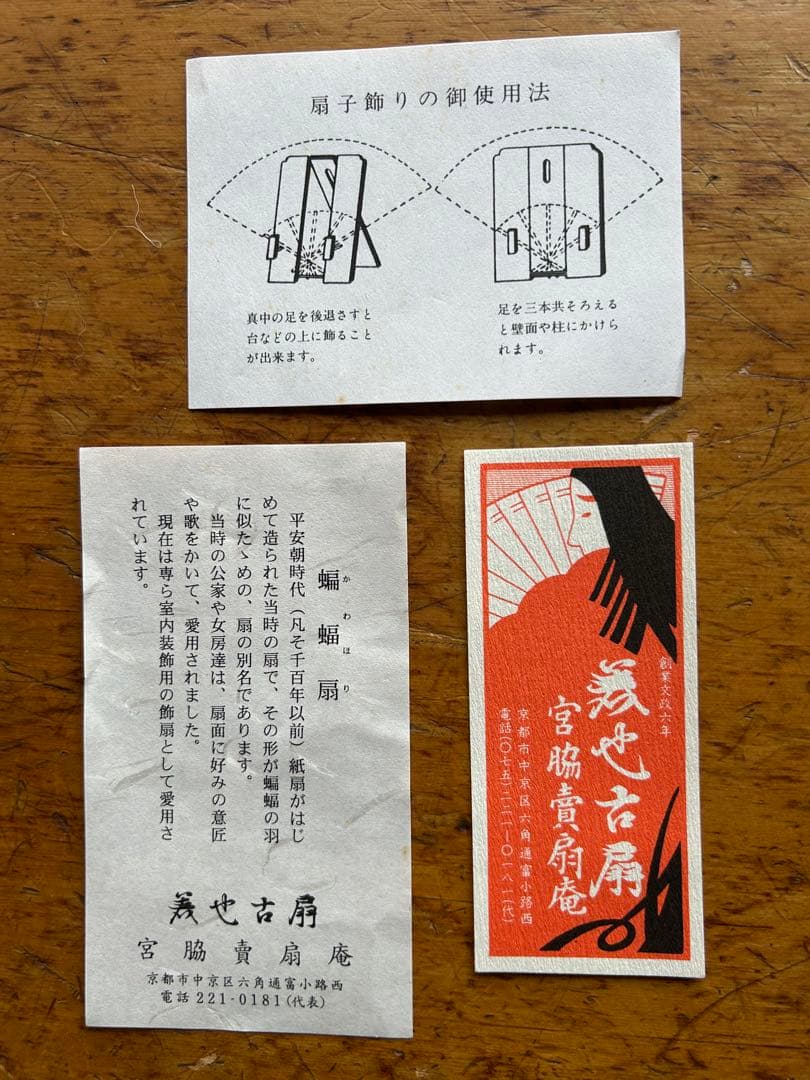 扇子飾りの御使用法
真中の足を後退さすと
台などの上に飾ること
が出来ます。
足を三本共そろえる
と壁面や柱にかけら
れます。
蝙蝠扇
かわほり
平安朝時代（凡そ千百年以前）紙扇がはじ
めて造られた当時の扇で、その形が蝙蝠の羽
に似たゝめの、扇の別名であります。
当時の公家や女房達は、扇面に好みの意匠
や歌をかいて、愛用されました。
現在は専ら室内装飾用の飾扇として愛用さ
れています。
美也古扇
宮脇賣扇庵
京都市中京区六角通富小路西
電話 221-0181(代表)
創業文政六年
美也古扇
宮脇賣扇庵
京都市中京区六角通富小路西
電話(〇七五)二二一ー〇一八一(代)